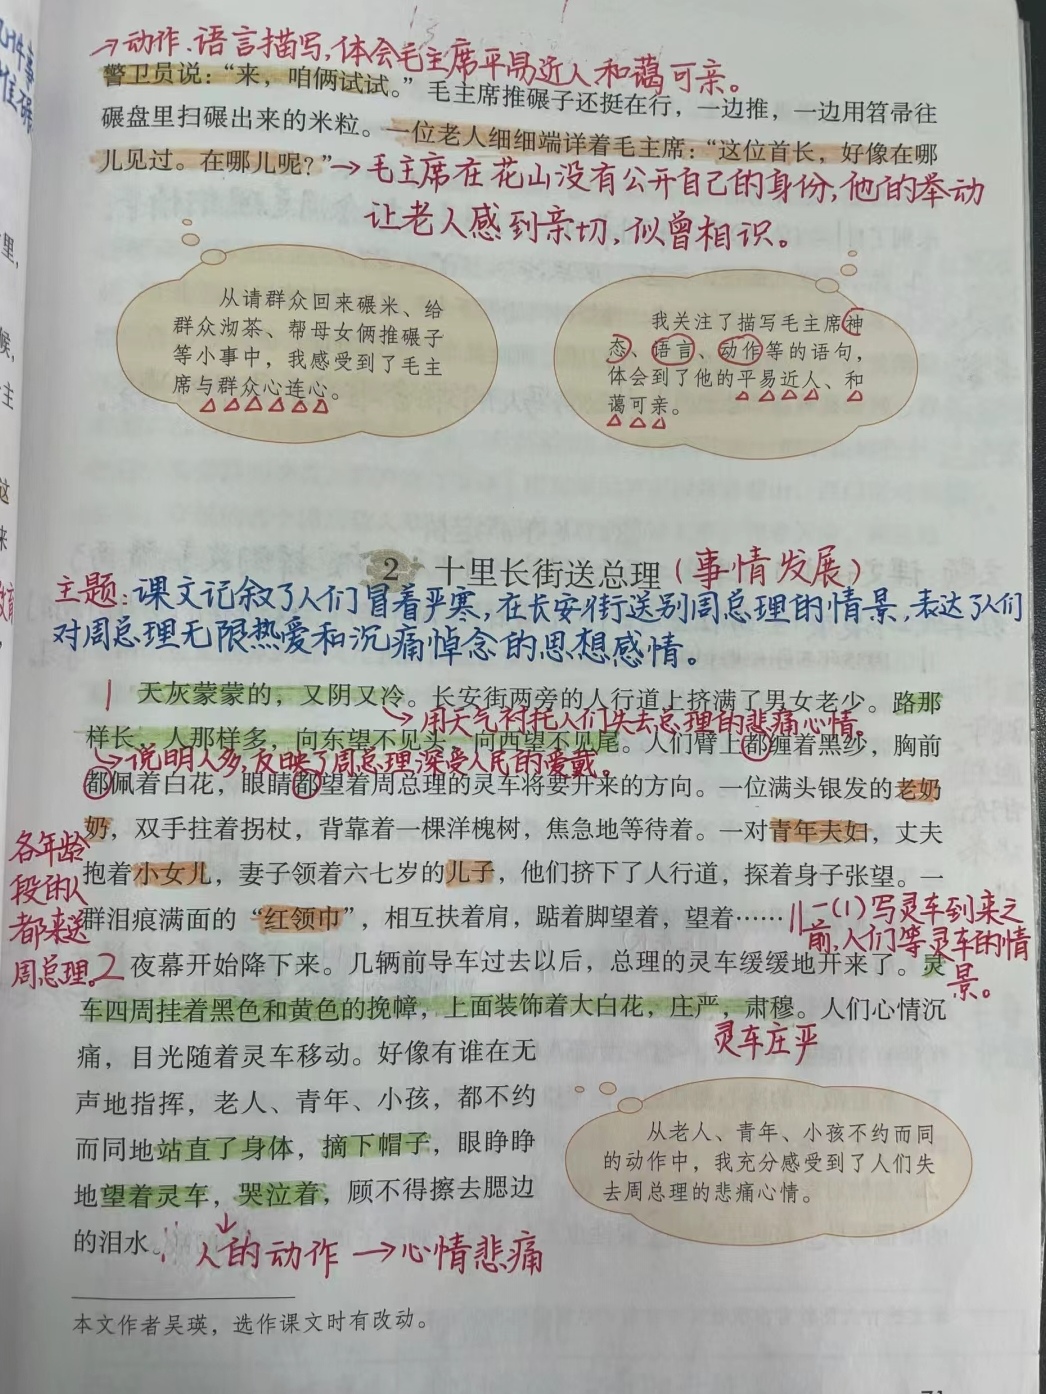 几件事
→动作、语言描写,体会毛主席平易近人和蔼可亲。
警卫员说：“来，咱俩试试。”毛主席推碾子还挺在行，一边推，一边用笤帚往
碾盘里扫碾出来的米粒。一位老人细细端详着毛主席：“这位首长，好像在哪
儿见过。在哪儿呢？”→毛主席在花山没有公开自己的身份,他的举动
让老人感到亲切,似曾相识。
从请群众回来碾米、给
群众沏茶、帮母女俩推碾子
等小事中，我感受到了毛主
席与群众心连心。
我关注了描写毛主席神
态、语言、动作等的语句，
体会到了他的平易近人、和
蔼可亲。
2 十里长街送总理(事情发展)
主题:课文记叙了人们冒着严寒,在长安街送别周总理的情景,表达了人们
对周总理无限热爱和沉痛悼念的思想感情。
1 天灰蒙蒙的，又阴又冷。长安街两旁的人行道上挤满了男女老少。路那
→用天气衬托人们失去总理的悲痛心情。
样长，人那样多，向东望不见头，向西望不见尾。人们臂上都缠着黑纱，胸前
→说明人多,反映了周总理深受人民的爱戴。
都佩着白花，眼睛都望着周总理的灵车将要开来的方向。一位满头银发的老奶
奶，双手拄着拐杖，背靠着一棵洋槐树，焦急地等待着。一对青年夫妇，丈夫
抱着小女儿，妻子领着六七岁的儿子，他们挤下了人行道，探着身子张望。一
群泪痕满面的“红领巾”，相互扶着肩，踮着脚望着，望着……‖一(1)写灵车到来之
前,人们等灵车的情
景。
各年龄
段的人
都来送
周总理。
2 夜幕开始降下来。几辆前导车过去以后，总理的灵车缓缓地开来了。灵
车四周挂着黑色和黄色的挽幛，上面装饰着大白花，庄严，肃穆。人们心情沉
灵车庄严
痛，目光随着灵车移动。好像有谁在无
声地指挥，老人、青年、小孩，都不约
而同地站直了身体，摘下帽子，眼睁睁
地望着灵车，哭泣着，顾不得擦去腮边
的泪水。
人的动作→心情悲痛
从老人、青年、小孩不约而同
的动作中，我充分感受到了人们失
去周总理的悲痛心情。
本文作者吴瑛，选作课文时有改动。